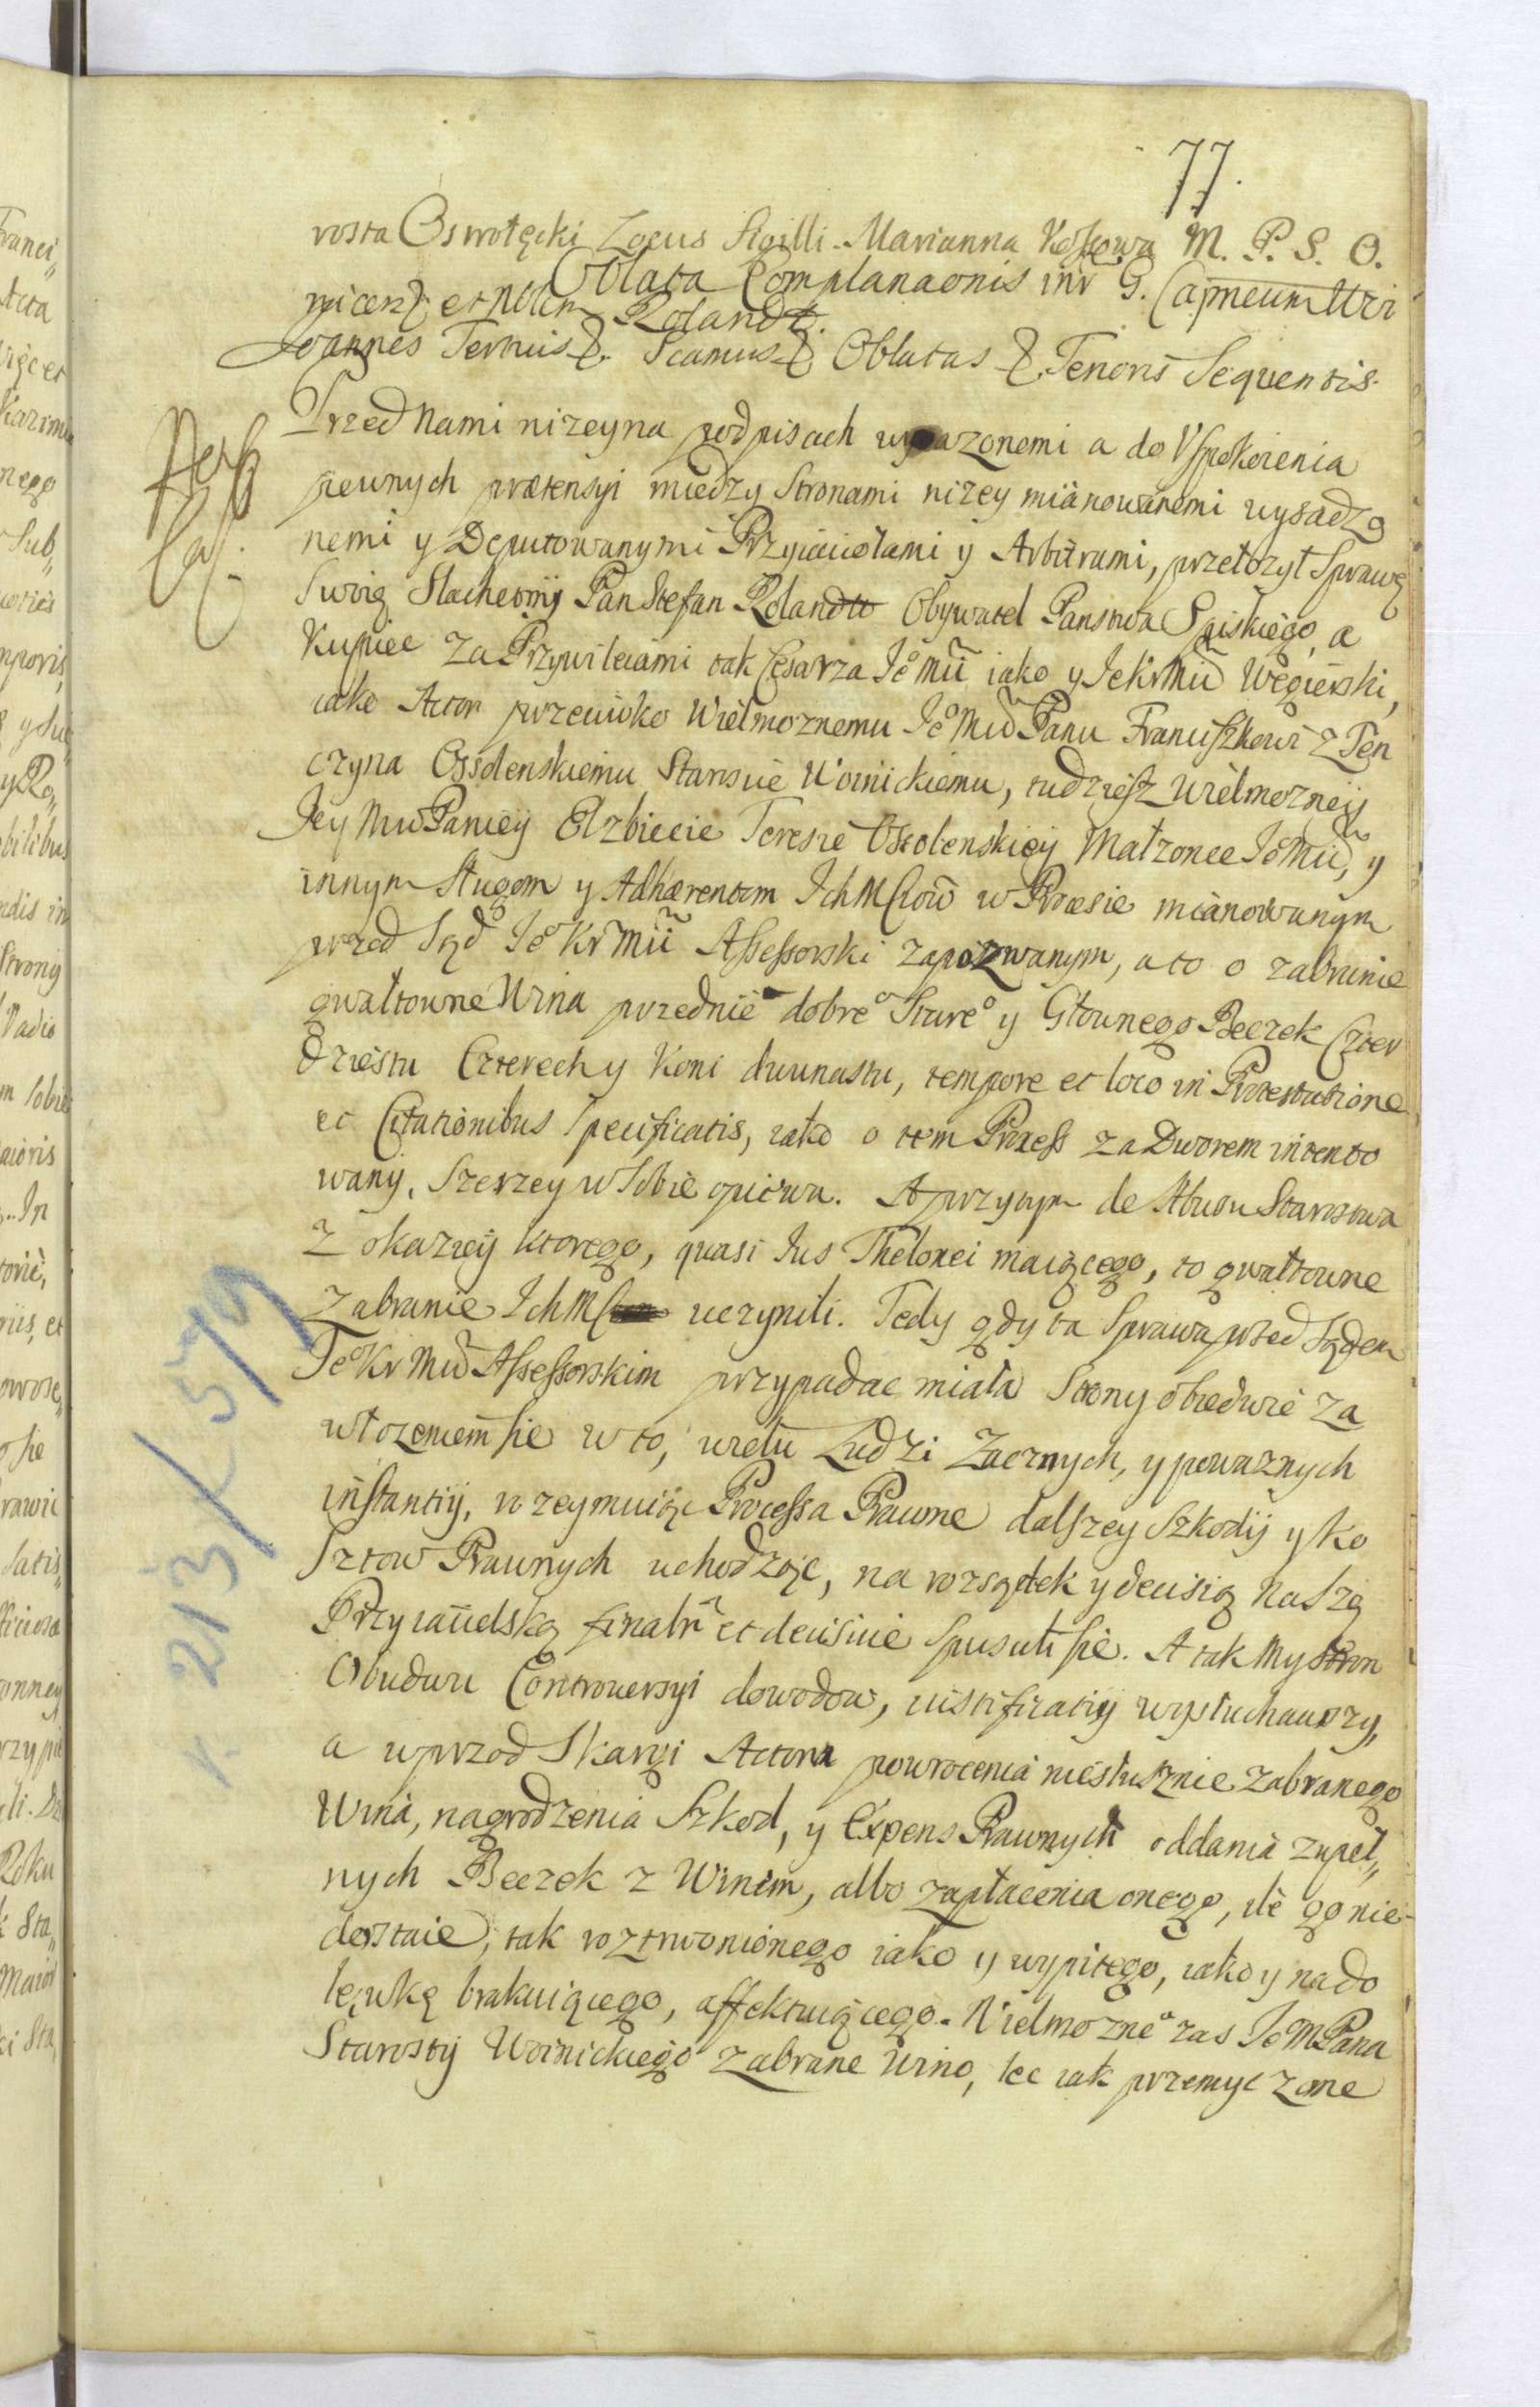 77.
rosta Oswołęcki Locus Sigilli. Marianna M. P. S. O.
Oblata Complanaonis inr G. Capneum
et Nblem Rolandt.
Joannes Tertius &. Scamus & Oblatas &. Tenoris Sequentis.
Przed Nami nizey na podpisach wyrazonemi a do Vspokoienia
pewnych prætensyi miedzy Stronami nizey miánowanemi wysadzo
nemi y Deputowanymi Przyiaciołami y Arbitrami, przełozył Sprawę
Swoię Slachetnÿ Pan Stefan Rolandt Obywatel Panstwa Spiskiego, a
Kupiec za Przywileiami tak Cesarza Jeo Mci iako y JeKrMci Węgierski,
iako Actor przeciwko Wielmoznemu Jeo Mci Panu Franciszkowi z Ten
czyna Ossolenskiemu Staroscie Woinickiemu, tudziesz Wielmozneÿ
Jey Mci Panieÿ Elzbiecie Teresie Ossolenskieÿ Małzonce Jeo Mci, y
innym Sługom y Adhærentom Ich MCiow w Procesie miánowanym
przed Sąd Jeo Kr Mci Assessorski zapozwanym, a to o zabranie
gwałtowne Wina przednie dobreo Stareo y Głownego Beczek Czter
dziestu Czterech y Koni dwunastu, tempore et loco in Protestatione
et Citationibus specificatis, iako o tem Process za Dworem intento
wany, Szerzey w Sobie opiewa. A przytym de Abusu Starostwa
z okazieÿ ktorego, quasi Jus Thelonei maiącego, to gwałtowne
Zabranie Ich M uczynili. Tedy gdy ta Sprawa przed Sądem
Jeo Kr Mci Assessorskim przypadac miała Strony obiedwie za
włozeniem sie w to, wielu Ludzi Zacznych, y powaznych
instantiÿ, vzeymuiąc Processa Prawne dalszey Szkodÿ y ko
sztow Prawnych uchodząc, na rozsądek y decisią Naszą
Przyiacielską finalr et decisiue spuscili sie. A tak My Stron
Obudwu Controuersyi dowodow, iustificatiÿ wysłuchawszy,
a wprzod Skargi Actora powrocenia niesłusznie zabranego
Wina, nagrodzenia Szkod, y Expens Prawnych oddania zupeł„
nych Beczek z Winem, albo zapłacenia onego, ile go nie
dostaie, tak roztrwonionego iako y wypitego, iako y na do
lewkę brakuiącego, affektuiącego. Wielmozneo zas Jeo M Pana
Starostÿ Woinickiego Zabrane Wino, lec iak przemyczone
r. 213/579